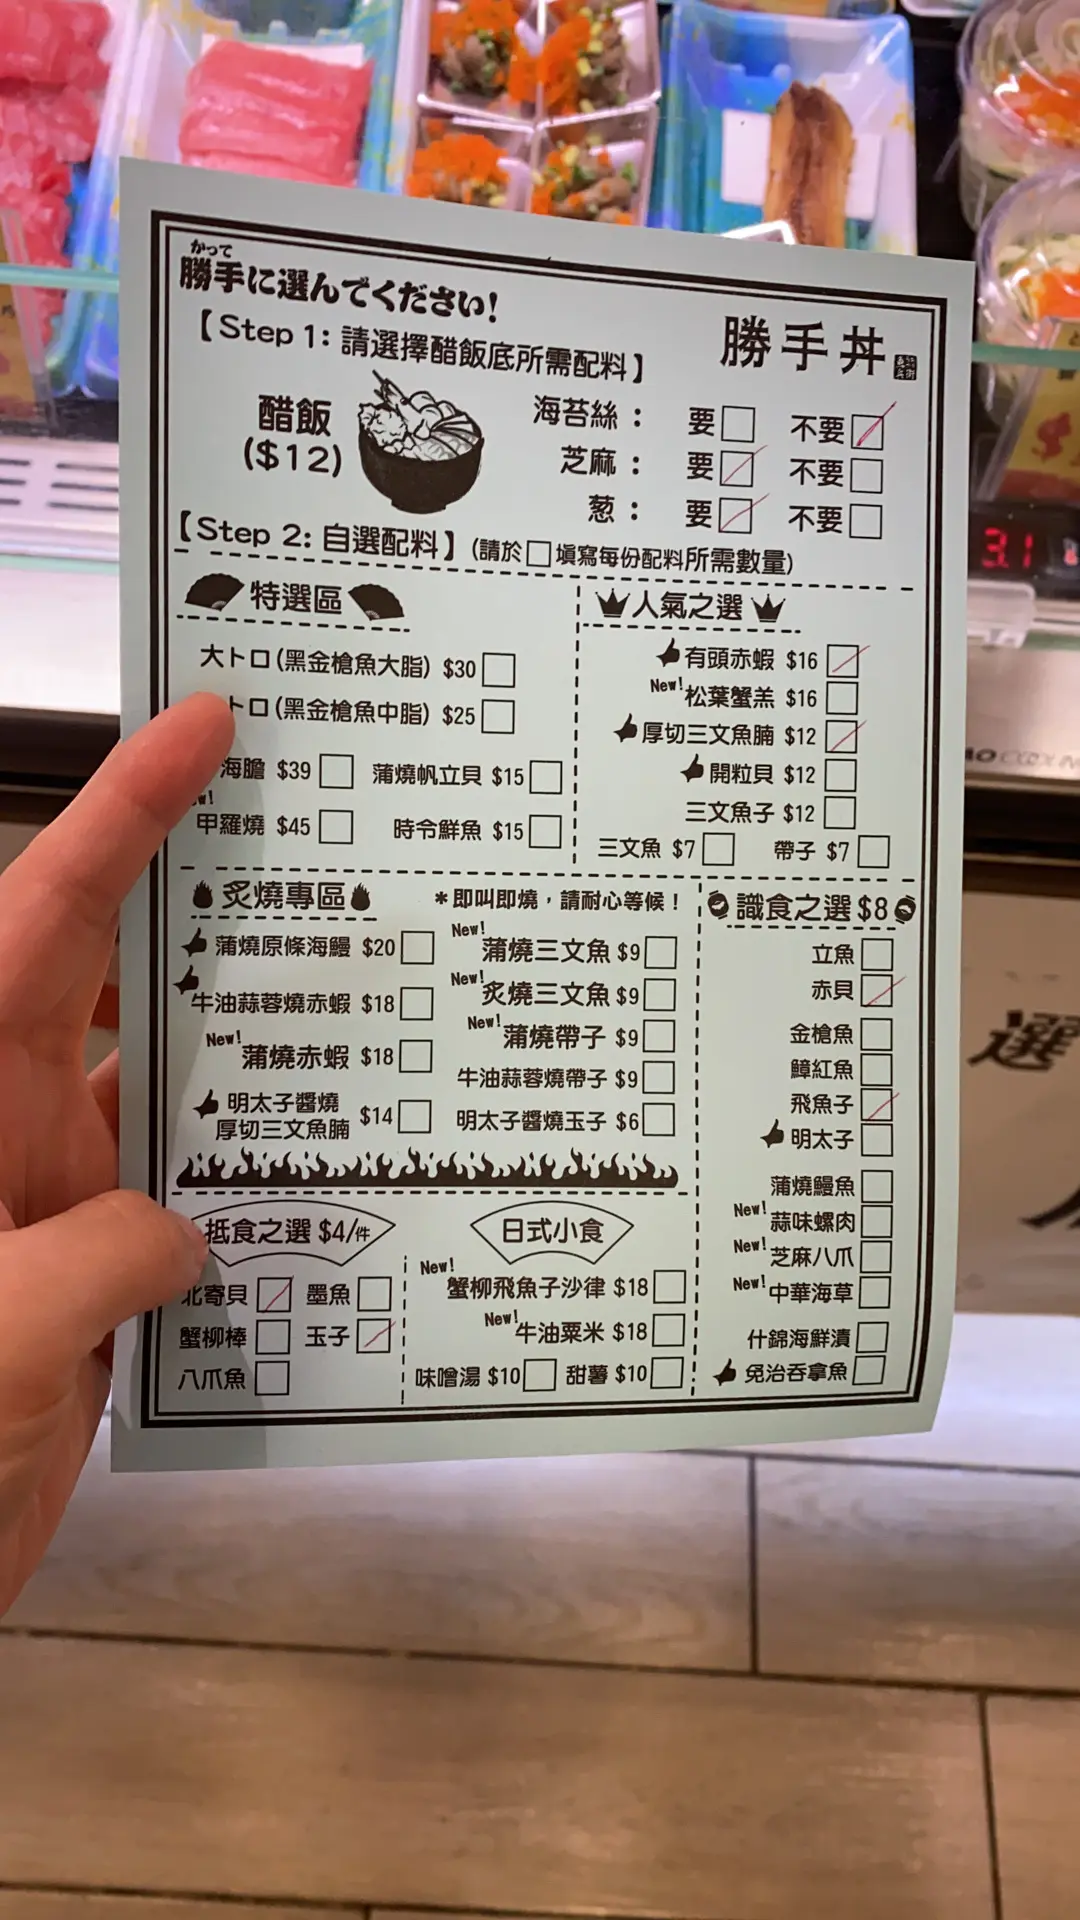 かって
勝手に選んでください!
【Step 1: 請選擇醋飯底所需配料】
勝手丼
醋飯
($12)
海苔絲： 要 不要
芝麻： 要 不要
葱： 要 不要
【Step 2: 自選配料】(請於□填寫每份配料所需數量)
特選區
大トロ(黑金槍魚大脂) $30
トロ(黑金槍魚中脂) $25
海膽 $39 蒲燒帆立貝 $15
甲羅燒 $45 時令鮮魚 $15
人氣之選
有頭赤蝦 $16
New! 松葉蟹羔 $16
厚切三文魚腩 $12
開粒貝 $12
三文魚子 $12
三文魚 $7 帶子 $7
炙燒專區
*即叫即燒，請耐心等候！
蒲燒原條海鰻 $20
牛油蒜蓉燒赤蝦 $18
New! 蒲燒赤蝦 $18
明太子醬燒
厚切三文魚腩 $14
New! 蒲燒三文魚 $9
New! 炙燒三文魚 $9
New! 蒲燒帶子 $9
牛油蒜蓉燒帶子 $9
明太子醬燒玉子 $6
識食之選 $8
立魚
赤貝
金槍魚
鱆紅魚
飛魚子
明太子
蒲燒鰻魚
New! 蒜味螺肉
New! 芝麻八爪
New! 中華海草
什錦海鮮漬
免治吞拿魚
抵食之選 $4/件
北寄貝 墨魚
蟹柳棒 玉子
八爪魚
日式小食
New! 蟹柳飛魚子沙律 $18
New! 牛油粟米 $18
味噌湯 $10 甜薯 $10
31
選